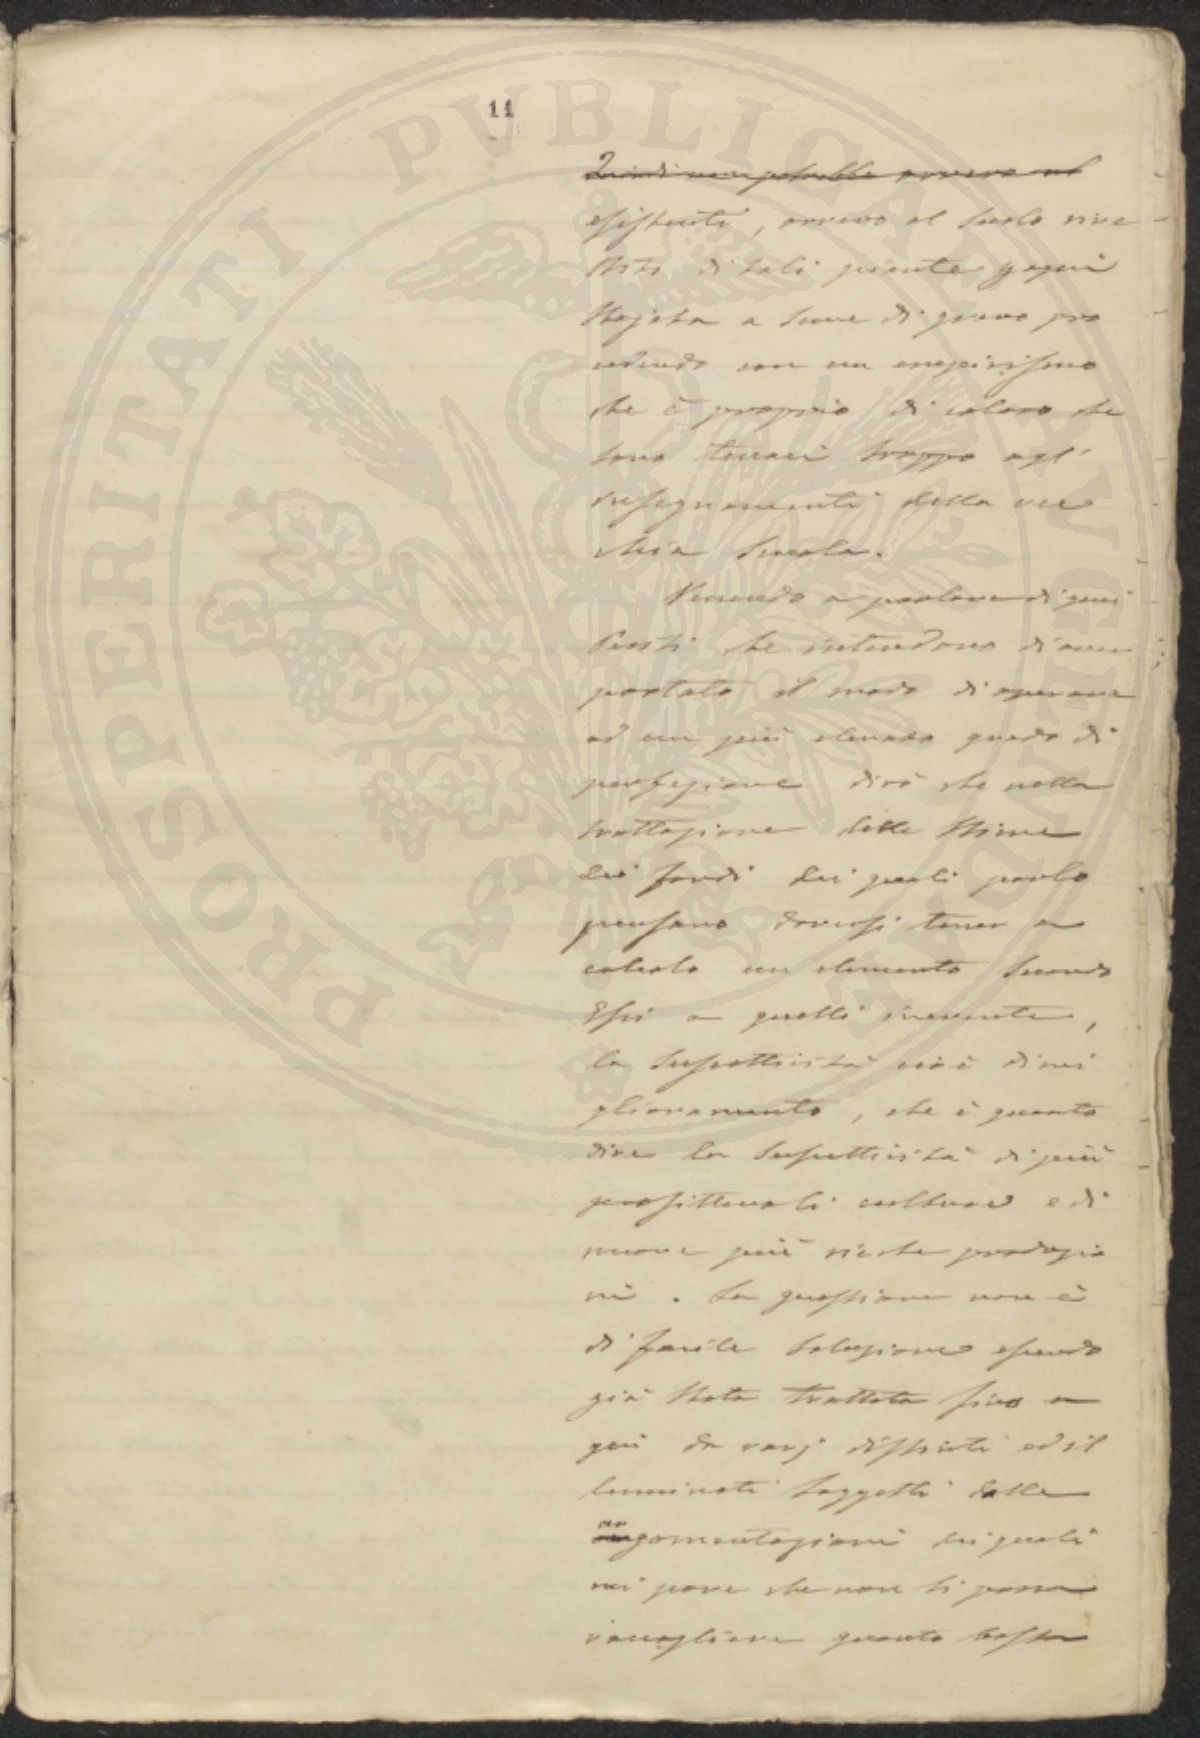 11
PROSPERITATI PVBLICAE AVGENDAE
Quindi non potrebbe ovvero al
esistenti, ovvero al suolo rive
stiti di tali piante
a di
cedendo con un empirissmo
che è proprio di coloro che
sono tenaci troppo agl'
insegnamenti della vec
chia Scuola.
Venendo a parlare di quei
Periti che intendono d'aver
portato il modo di operare
ad un più elevato grado di
perfezione dirò che nella
trattazione delle Stime
dei fondi dei quali parlo
pensano doversi tener a
calcolo un elemento secondo
Essi a quelli inerente,
la suscettività cioè di mi
glioramento, che è quanto
dire la suscettività di più
profittevoli culture e di
nuove più ricche produzio
ni. La questione non è
di facile soluzione essendo
già stata trattata fino a
qui da varj distinti ed il
luminati soggetti dalle
argomentazioni dei quali
mi pare che non si possa
raccogliere quanto basta